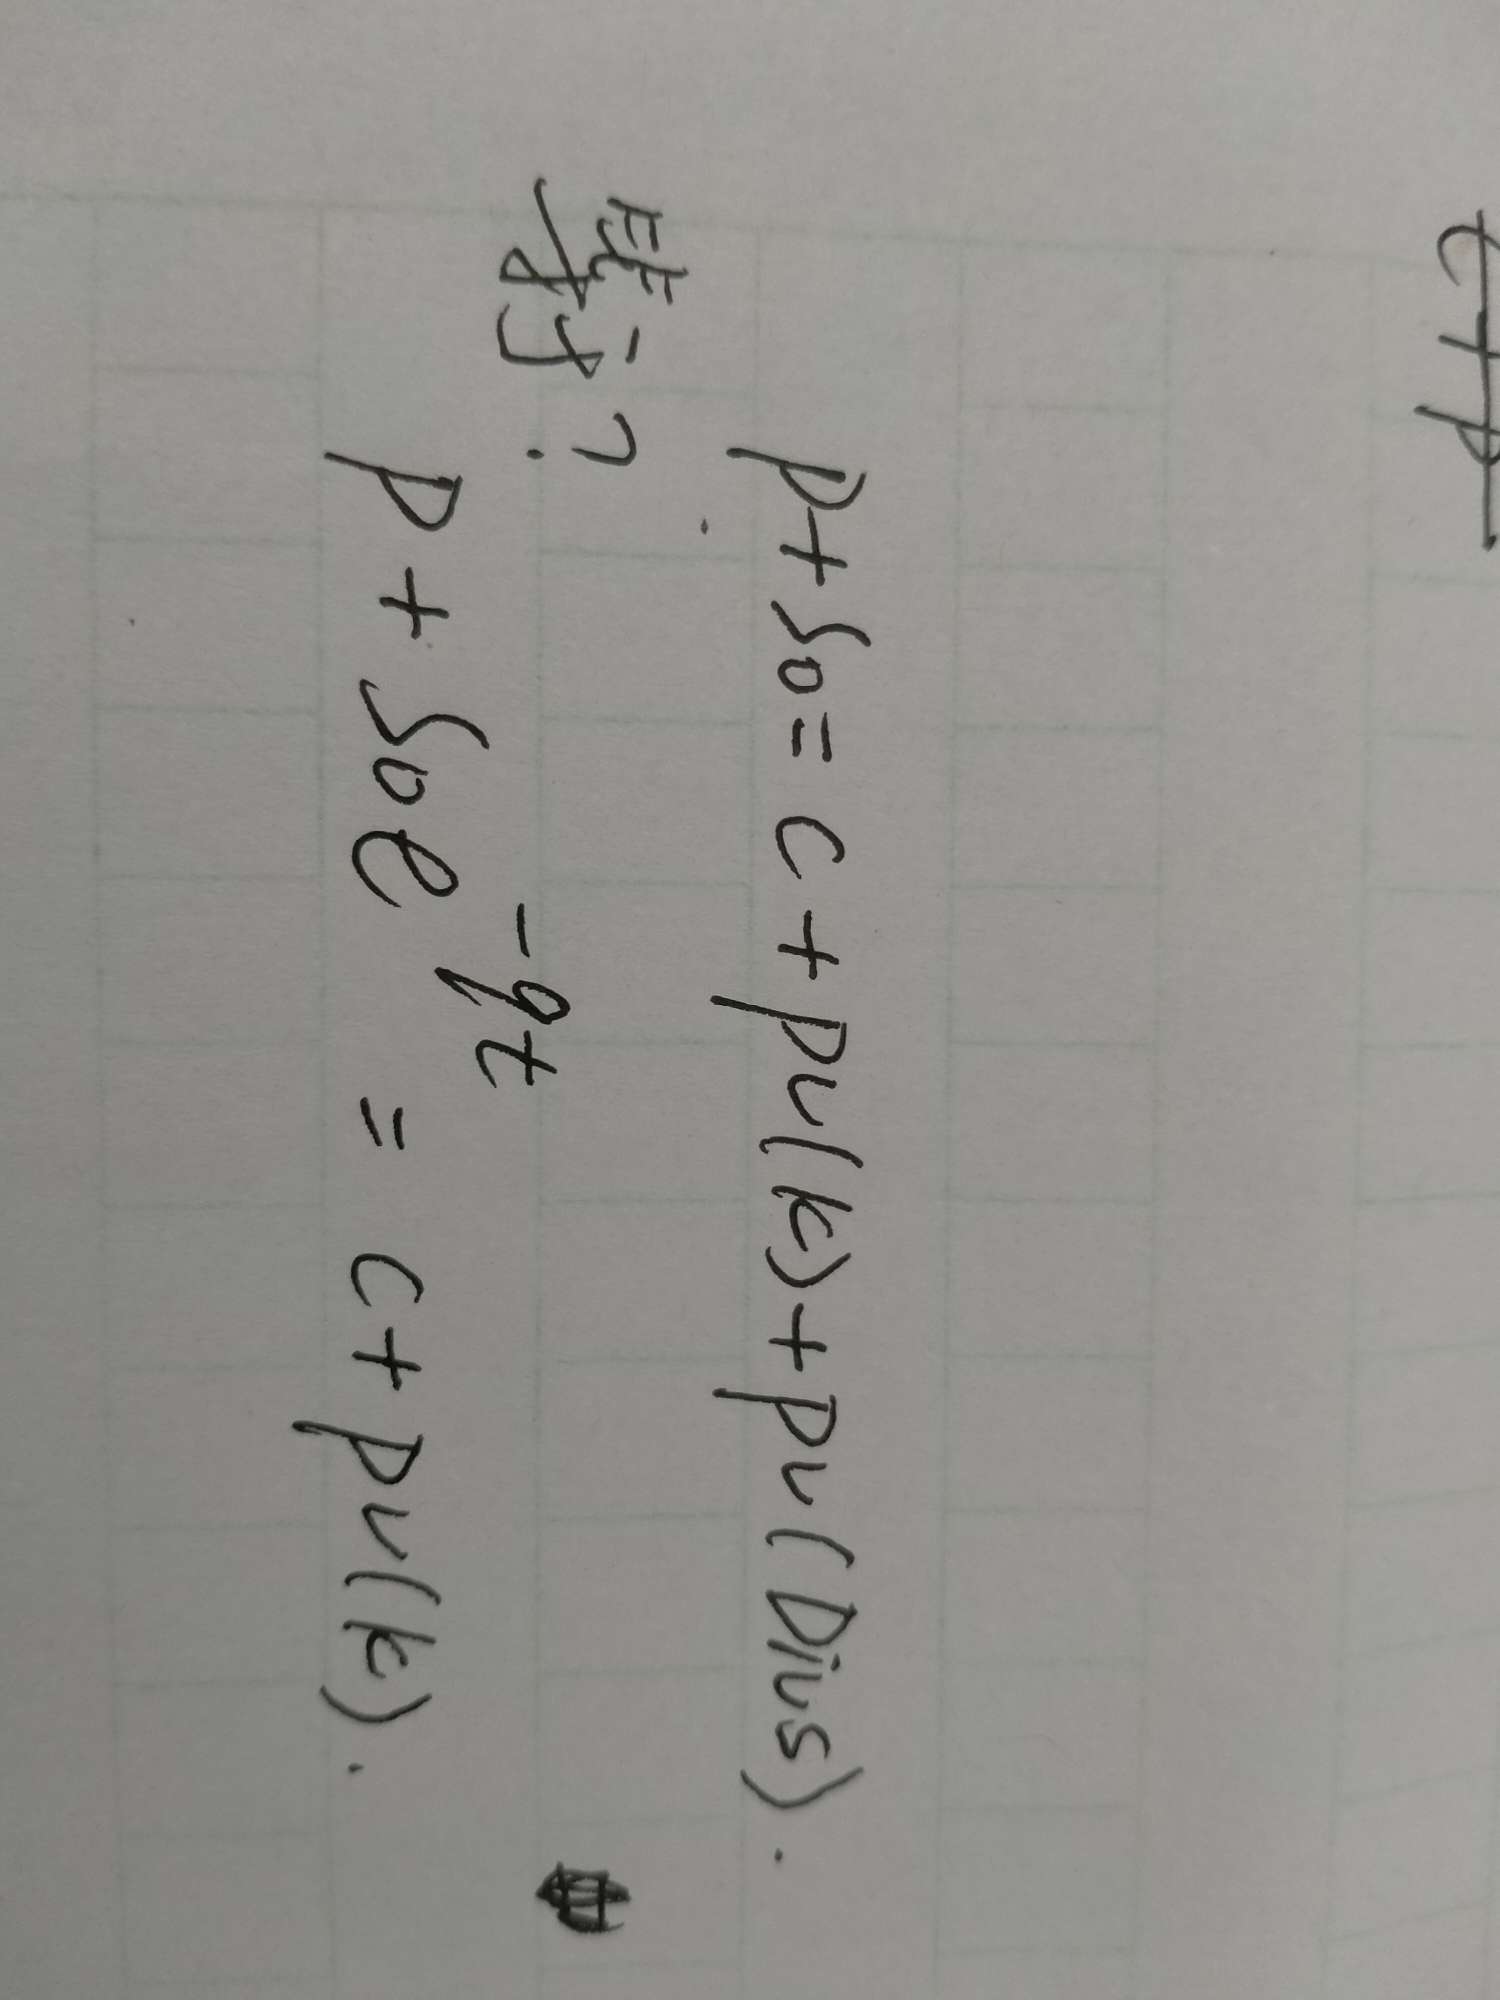 P + S0 = C + PV(K) + PV(Divs).
P + S0e^-qt = C + PV(K).